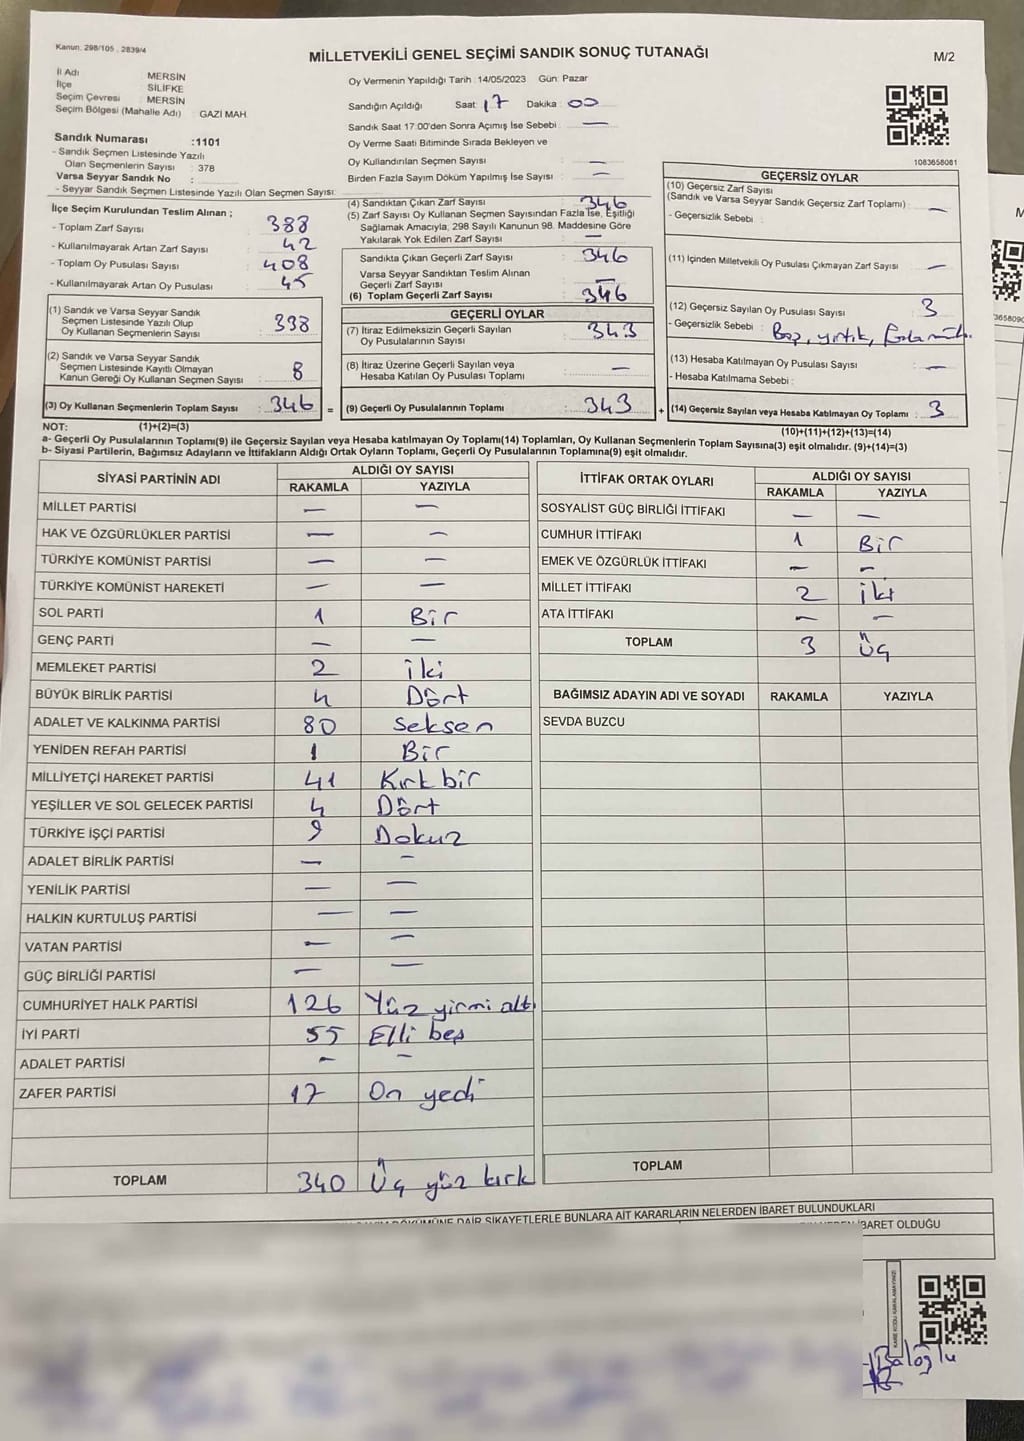 Kanun. 298/105 , 2839/4
MİLLETVEKİLİ GENEL SEÇİMİ SANDIK SONUÇ TUTANAĞI
M/2
İl Adı : MERSİN
İlçe : SİLİFKE
Seçim Çevresi : MERSİN
Seçim Bölgesi (Mahalle Adı) : GAZİ MAH.
Oy Vermenin Yapıldığı Tarih : 14/05/2023 Gün: Pazar
Sandığın Açıldığı Saat : 17 Dakika : 00
Sandık Saat 17:00'den Sonra Açımış İse Sebebi : —
Oy Verme Saati Bitiminde Sırada Bekleyen ve
Oy Kullandırılan Seçmen Sayısı : —
Birden Fazla Sayım Döküm Yapılmış İse Sayısı : —
1083658081
Sandık Numarası :1101
- Sandık Seçmen Listesinde Yazılı
Olan Seçmenlerin Sayısı : 378
Varsa Seyyar Sandık No :
- Seyyar Sandık Seçmen Listesinde Yazılı Olan Seçmen Sayısı:
İlçe Seçim Kurulundan Teslim Alınan ;
- Toplam Zarf Sayısı : 388
- Kullanılmayarak Artan Zarf Sayısı : 42
- Toplam Oy Pusulası Sayısı : 408
- Kullanılmayarak Artan Oy Pusulası : 45
(1) Sandık ve Varsa Seyyar Sandık
Seçmen Listesinde Yazılı Olup
Oy Kullanan Seçmenlerin Sayısı : 338
(2) Sandık ve Varsa Seyyar Sandık
Seçmen Listesinde Kayıtlı Olmayan
Kanun Gereği Oy Kullanan Seçmen Sayısı : 8
(3) Oy Kullanan Seçmenlerin Toplam Sayısı : 346 =
(4) Sandıktan Çıkan Zarf Sayısı : 346
(5) Zarf Sayısı Oy Kullanan Seçmen Sayısından Fazla İse, Eşitliği
Sağlamak Amacıyla, 298 Sayılı Kanunun 98. Maddesine Göre
Yakılarak Yok Edilen Zarf Sayısı : —
Sandıkta Çıkan Geçerli Zarf Sayısı : 346
Varsa Seyyar Sandıktan Teslim Alınan
Geçerli Zarf Sayısı : —
(6) Toplam Geçerli Zarf Sayısı : 346
GEÇERLİ OYLAR
(7) İtiraz Edilmeksizin Geçerli Sayılan
Oy Pusulalarının Sayısı : 343
(8) İtiraz Üzerine Geçerli Sayılan veya
Hesaba Katılan Oy Pusulası Toplamı : —
(9) Geçerli Oy Pusulalarının Toplamı : 343 +
GEÇERSİZ OYLAR
(10) Geçersiz Zarf Sayısı
(Sandık ve Varsa Seyyar Sandık Geçersiz Zarf Toplamı) : —
- Geçersizlik Sebebi :
(11) İçinden Milletvekili Oy Pusulası Çıkmayan Zarf Sayısı : —
(12) Geçersiz Sayılan Oy Pusulası Sayısı : 3
- Geçersizlik Sebebi : Boş, yırtık,
(13) Hesaba Katılmayan Oy Pusulası Sayısı : —
- Hesaba Katılmama Sebebi :
(14) Geçersiz Sayılan veya Hesaba Katılmayan Oy Toplamı : 3
NOT: (1)+(2)=(3)
(10)+(11)+(12)+(13)=(14)
a- Geçerli Oy Pusulalarının Toplamı(9) ile Geçersiz Sayılan veya Hesaba katılmayan Oy Toplamı(14) Toplamları, Oy Kullanan Seçmenlerin Toplam Sayısına(3) eşit olmalıdır. (9)+(14)=(3)
b- Siyasi Partilerin, Bağımsız Adayların ve İttifakların Aldığı Ortak Oyların Toplamı, Geçerli Oy Pusulalarının Toplamına(9) eşit olmalıdır.
SİYASİ PARTİNİN ADI ALDIĞI OY SAYISI
RAKAMLA YAZIYLA
MİLLET PARTİSİ — —
HAK VE ÖZGÜRLÜKLER PARTİSİ — —
TÜRKİYE KOMÜNİST PARTİSİ — —
TÜRKİYE KOMÜNİST HAREKETİ — —
SOL PARTİ 1 Bir
GENÇ PARTİ — —
MEMLEKET PARTİSİ 2 iki
BÜYÜK BİRLİK PARTİSİ 4 Dört
ADALET VE KALKINMA PARTİSİ 80 Seksen
YENİDEN REFAH PARTİSİ 1 Bir
MİLLİYETÇİ HAREKET PARTİSİ 41 Kırk bir
YEŞİLLER VE SOL GELECEK PARTİSİ 4 Dört
TÜRKİYE İŞÇİ PARTİSİ 9 Dokuz
ADALET BİRLİK PARTİSİ — —
YENİLİK PARTİSİ — —
HALKIN KURTULUŞ PARTİSİ — —
VATAN PARTİSİ — —
GÜÇ BİRLİĞİ PARTİSİ — —
CUMHURİYET HALK PARTİSİ 126 Yüz yirmi altı
İYİ PARTİ 55 Elli beş
ADALET PARTİSİ — —
ZAFER PARTİSİ 17 On yedi
TOPLAM 340 Üç yüz kırk
İTTİFAK ORTAK OYLARI ALDIĞI OY SAYISI
RAKAMLA YAZIYLA
SOSYALİST GÜÇ BİRLİĞİ İTTİFAKI — —
CUMHUR İTTİFAKI 1 Bir
EMEK VE ÖZGÜRLÜK İTTİFAKI — —
MİLLET İTTİFAKI 2 iki
ATA İTTİFAKI — —
TOPLAM 3 Üç
BAĞIMSIZ ADAYIN ADI VE SOYADI RAKAMLA YAZIYLA
SEVDA BUZCU
TOPLAM
DÖKÜMÜNE DAİR ŞİKAYETLERLE BUNLARA AİT KARARLARIN NELERDEN İBARET BULUNDUKLARI
İBARET OLDUĞU
KARE KODU KARALAMAYINIZ!
Baloğlu